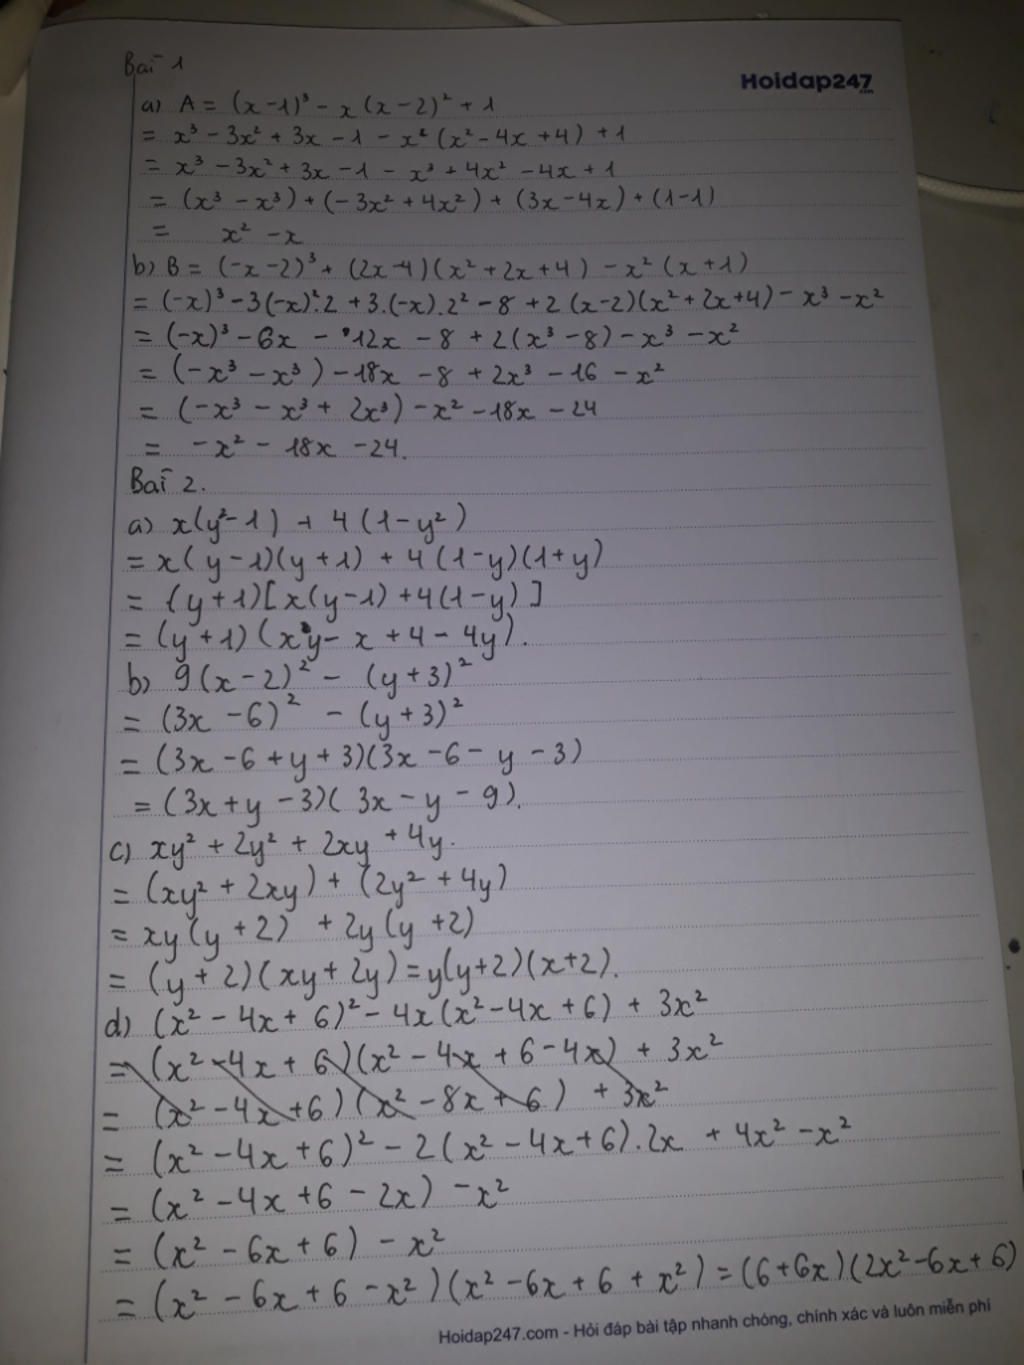 Bài 1
Hoidap247.com
a) A = (x-1)³ - x(x-2)² + 1
= x³ - 3x² + 3x - 1 - x²(x² - 4x + 4) + 1
= x³ - 3x² + 3x - 1 - x³ + 4x² - 4x + 1
= (x³ - x³) + (-3x² + 4x²) + (3x - 4x) + (1-1)
= x² - x
b) B = (-x-2)³ + (2x-4)(x² + 2x + 4) - x²(x+1)
= (-x)³ - 3(-x)².2 + 3.(-x).2² - 8 + 2(x-2)(x² + 2x + 4) - x³ - x²
= (-x)³ - 6x - 12x - 8 + 2(x³ - 8) - x³ - x²
= (-x³ - x³) - 18x - 8 + 2x³ - 16 - x²
= (-x³ - x³ + 2x³) - x² - 18x - 24
= -x² - 18x - 24.
Bài 2.
a) x(y² - 1) + 4(1 - y²)
= x(y-1)(y+1) + 4(1-y)(1+y)
= (y+1)[x(y-1) + 4(1-y)]
= (y+1)(xy - x + 4 - 4y).
b) 9(x-2)² - (y+3)²
= (3x - 6)² - (y+3)²
= (3x - 6 + y + 3)(3x - 6 - y - 3)
= (3x + y - 3)(3x - y - 9).
c) xy² + 2y² + 2xy + 4y.
= (xy² + 2xy) + (2y² + 4y)
= xy(y+2) + 2y(y+2)
= (y+2)(xy + 2y) = y(y+2)(x+2).
d) (x² - 4x + 6)² - 4x(x² - 4x + 6) + 3x²
= (x² - 4x + 6)(x² - 4x + 6 - 4x) + 3x²
= (x² - 4x + 6)(x² - 8x + 6) + 3x²
= (x² - 4x + 6)² - 2(x² - 4x + 6).2x + 4x² - x²
= (x² - 4x + 6 - 2x) - x²
= (x² - 6x + 6) - x²
= (x² - 6x + 6 - x²)(x² - 6x + 6 + x²) = (6+6x)(2x² - 6x + 6)
Hoidap247.com - Hỏi đáp bài tập nhanh chóng, chính xác và luôn miễn phí